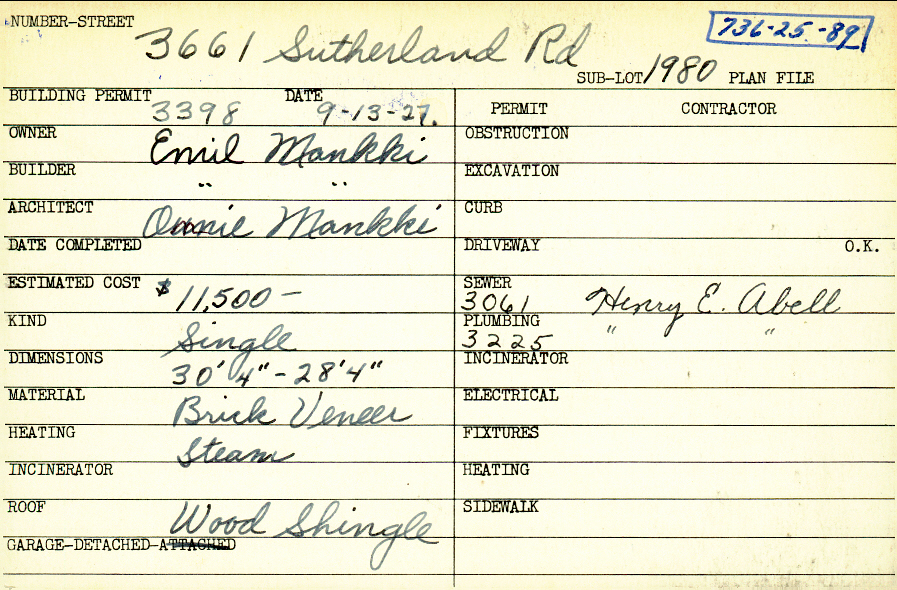 NUMBER-STREET
3661 Sutherland Rd
736-25-89
SUB-LOT 1980 PLAN FILE
BUILDING PERMIT 3398 DATE 9-13-27.
PERMIT CONTRACTOR
OWNER Emil Mankki
OBSTRUCTION
BUILDER " "
EXCAVATION
ARCHITECT Onnie Mankki
CURB
DATE COMPLETED
DRIVEWAY O.K.
ESTIMATED COST $11,500-
SEWER 3061 Henry E. Abell
KIND Single
PLUMBING 3225 " "
DIMENSIONS 30'4"-28'4"
INCINERATOR
MATERIAL Brick Veneer
ELECTRICAL
HEATING Steam
FIXTURES
INCINERATOR
HEATING
ROOF Wood Shingle
SIDEWALK
GARAGE-DETACHED-ATTACHED